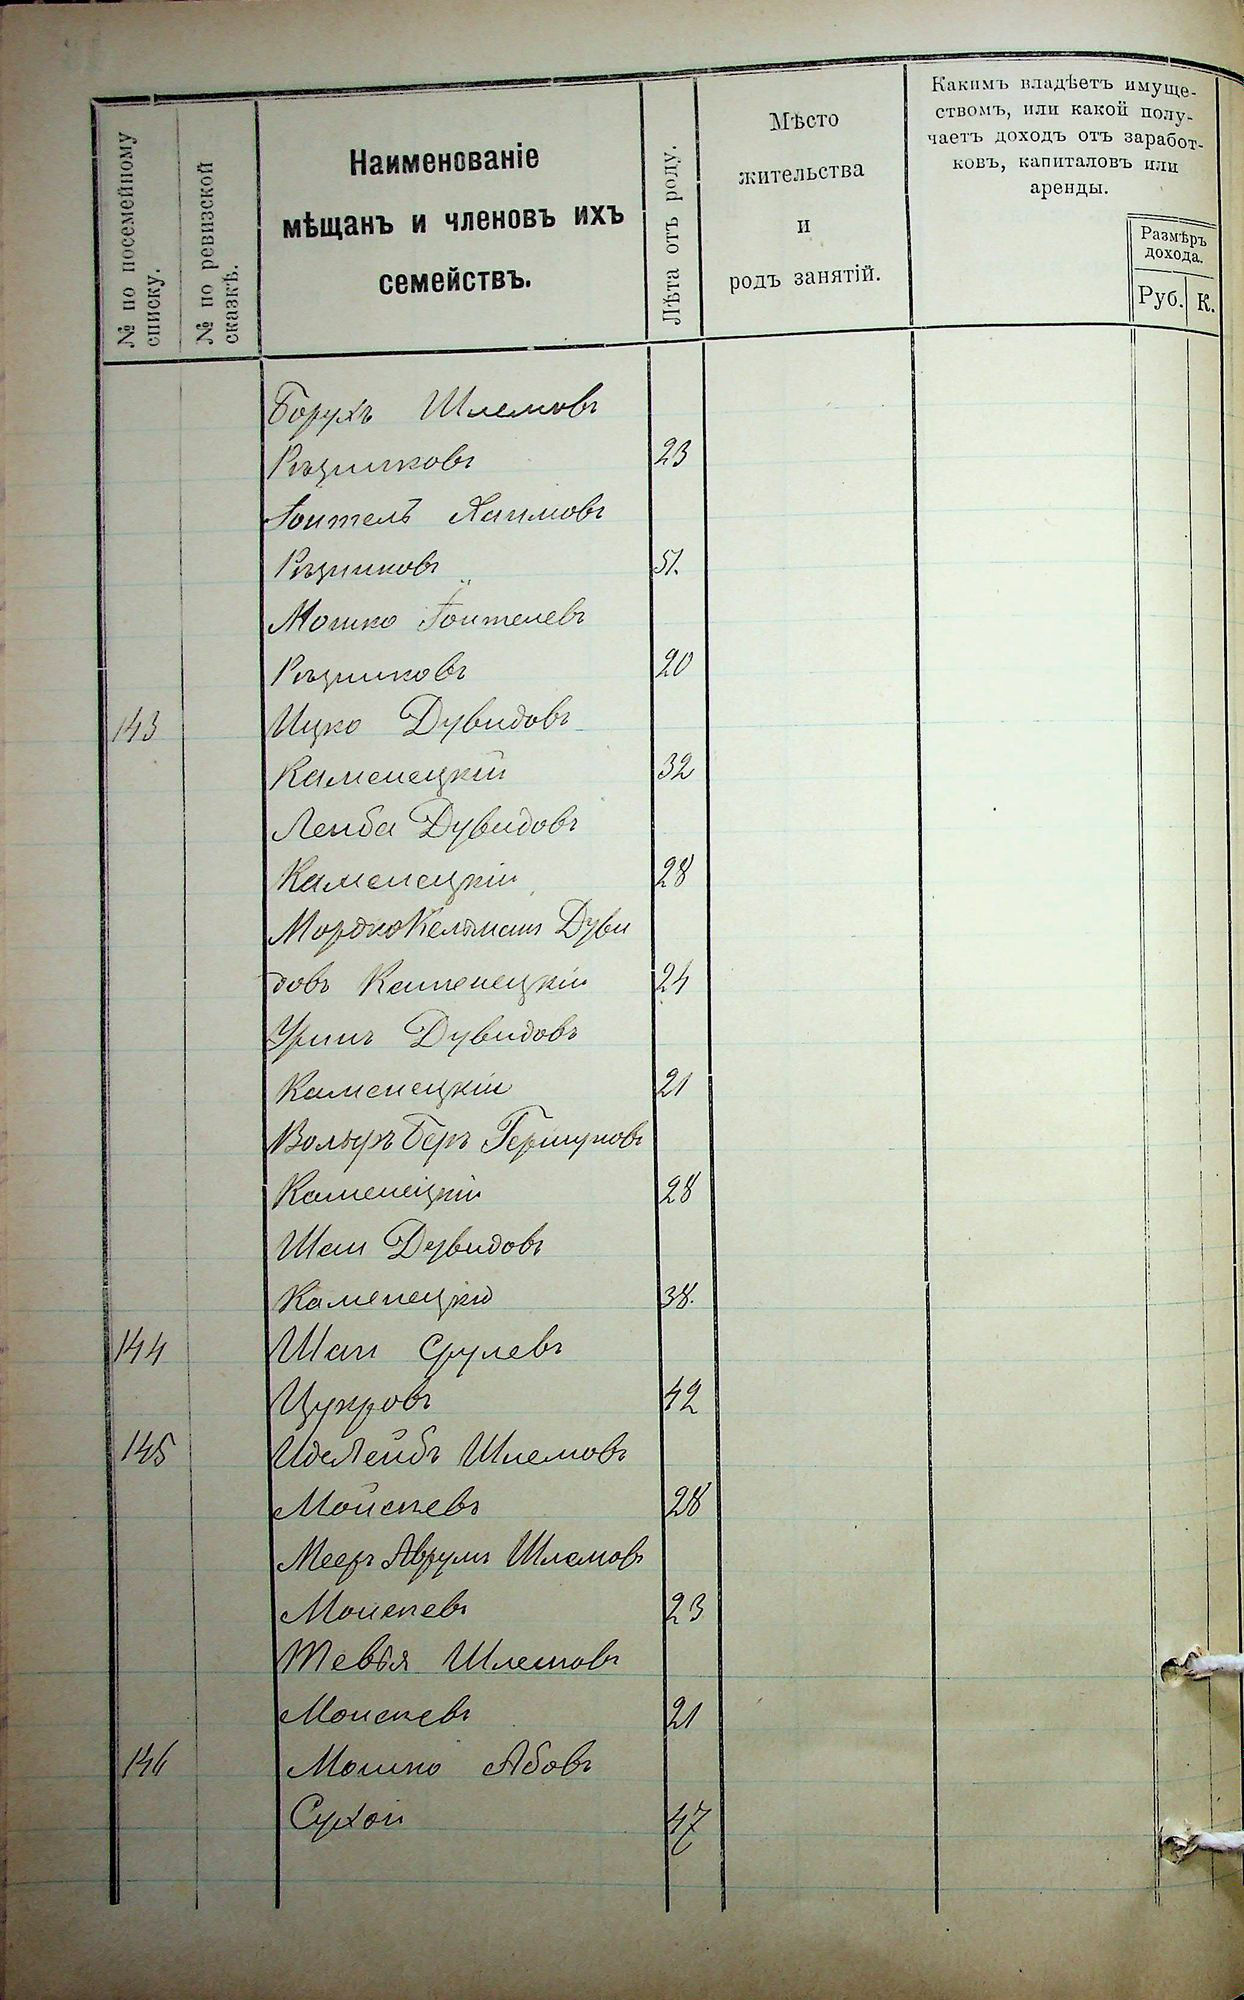 № по посемейному
списку.
№ по ревизской
сказкѣ.
Наименованіе
мѣщанъ и членовъ ихъ
семействъ.
Лѣта отъ роду.
Мѣсто
жительства
и
родъ занятій.
Какимъ владѣетъ имуще-
ствомъ, или какой полу-
чаетъ доходъ отъ заработ-
ковъ, капиталовъ или
аренды.
Размѣръ
дохода.
Руб. К.
Борухъ Шлемовъ
Рѣзниковъ 23
Хаимовъ
Рѣзниковъ 51.
Мошко
Рѣзниковъ 20
143 Ицко Дувидовъ
Каменецкій 32
Лейба Дувидовъ
Каменецкій 28
Мордко Келманъ Дуви
довъ Каменецкій 24
Урынъ Дувидовъ
Каменецкій 21
Вольфъ Беръ Гершуновъ
Каменецкій 28
Шая Дувидовъ
Каменецкій 38.
144 Шая Срулевъ
Цукровъ 42
145 Иделейбъ Шлемовъ
Мойсеевъ 28
Мееръ Аврумъ Шлемовъ
Мойсеевъ 23
Тевья Шлемовъ
Мойсеевъ 21
146 Мошко Абовъ
Сухой 47